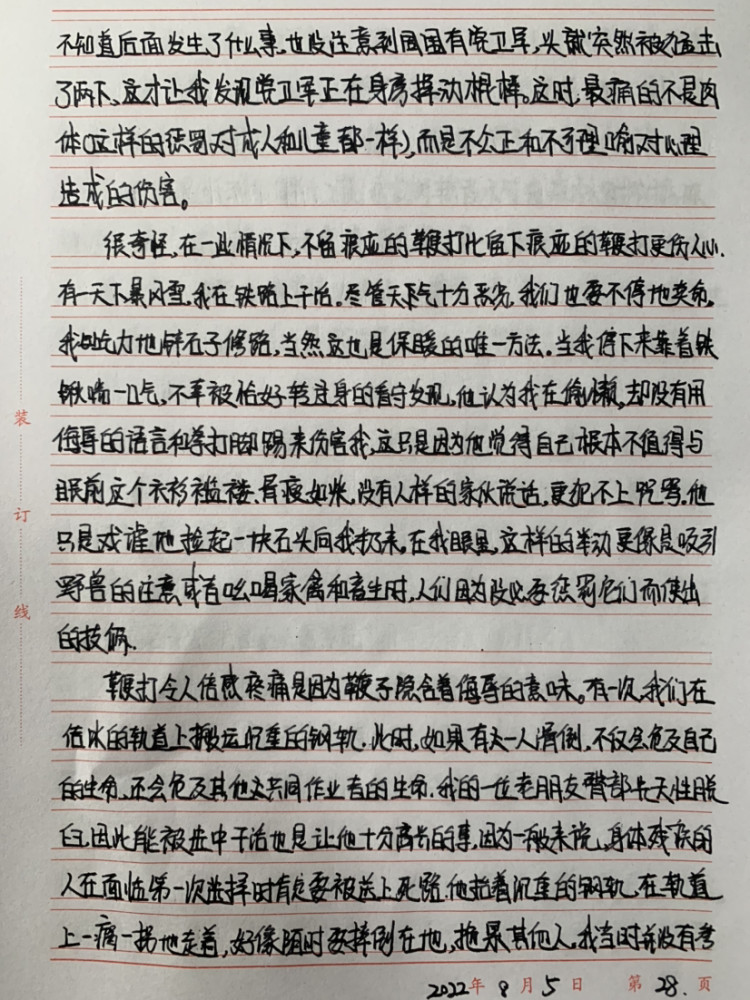 不知道后面发生了什么事,也没注意到周围有党卫军,头就突然被猛击
了两下。这才让我发现党卫军正在身旁挥动棍棒。这时,最痛的不是肉
体(这样的惩罚对成人和儿童都一样),而是不公正和不可理喻对心理
造成的伤害。
很奇怪,在一些情况下,不留痕迹的鞭打比留下痕迹的鞭打更伤人心.
有一天下暴风雪.我在铁路上干活.尽管天气十分恶劣,我们也要不停地卖命.
我吃力地铲石子修路,当然这也是保暖的唯一方法.当我停下来靠着铁
锹喘一口气,不幸被恰好转过身的看守发现.他认为我在偷懒,却没有用
侮辱的语言和拳打脚踢来伤害我,这只是因为他觉得自己根本不值得与
眼前这个衣衫褴褛、骨瘦如柴,没有人样的家伙说话,更犯不上咒骂.他
只是戏谑地捡起一块石头向我扔来.在我眼里,这样的举动更像是吸引
野兽的注意或者吆喝家禽和畜生时,人们因为没必要惩罚它们而使出
的技俩.
鞭打令人倍感疼痛是因为鞭子隐含着侮辱的意味。有一次,我们在
结冰的轨道上搬运沉重的钢轨.此时,如果有一人滑倒,不仅会危及自己
的生命,还会危及其他共同作业者的生命.我的一位老朋友臀部先天性脱
臼,因此能被选中干活也是让他十分高兴的事,因为一般来说,身体残疾的
人在面临第一次选择时肯定要被送上死路.他抬着沉重的钢轨,在轨道
上一瘸一拐地走着,好像随时要摔倒在地,拖累其他人.我当时并没有考
装
订
线
2022年 8月 5日 第28.页